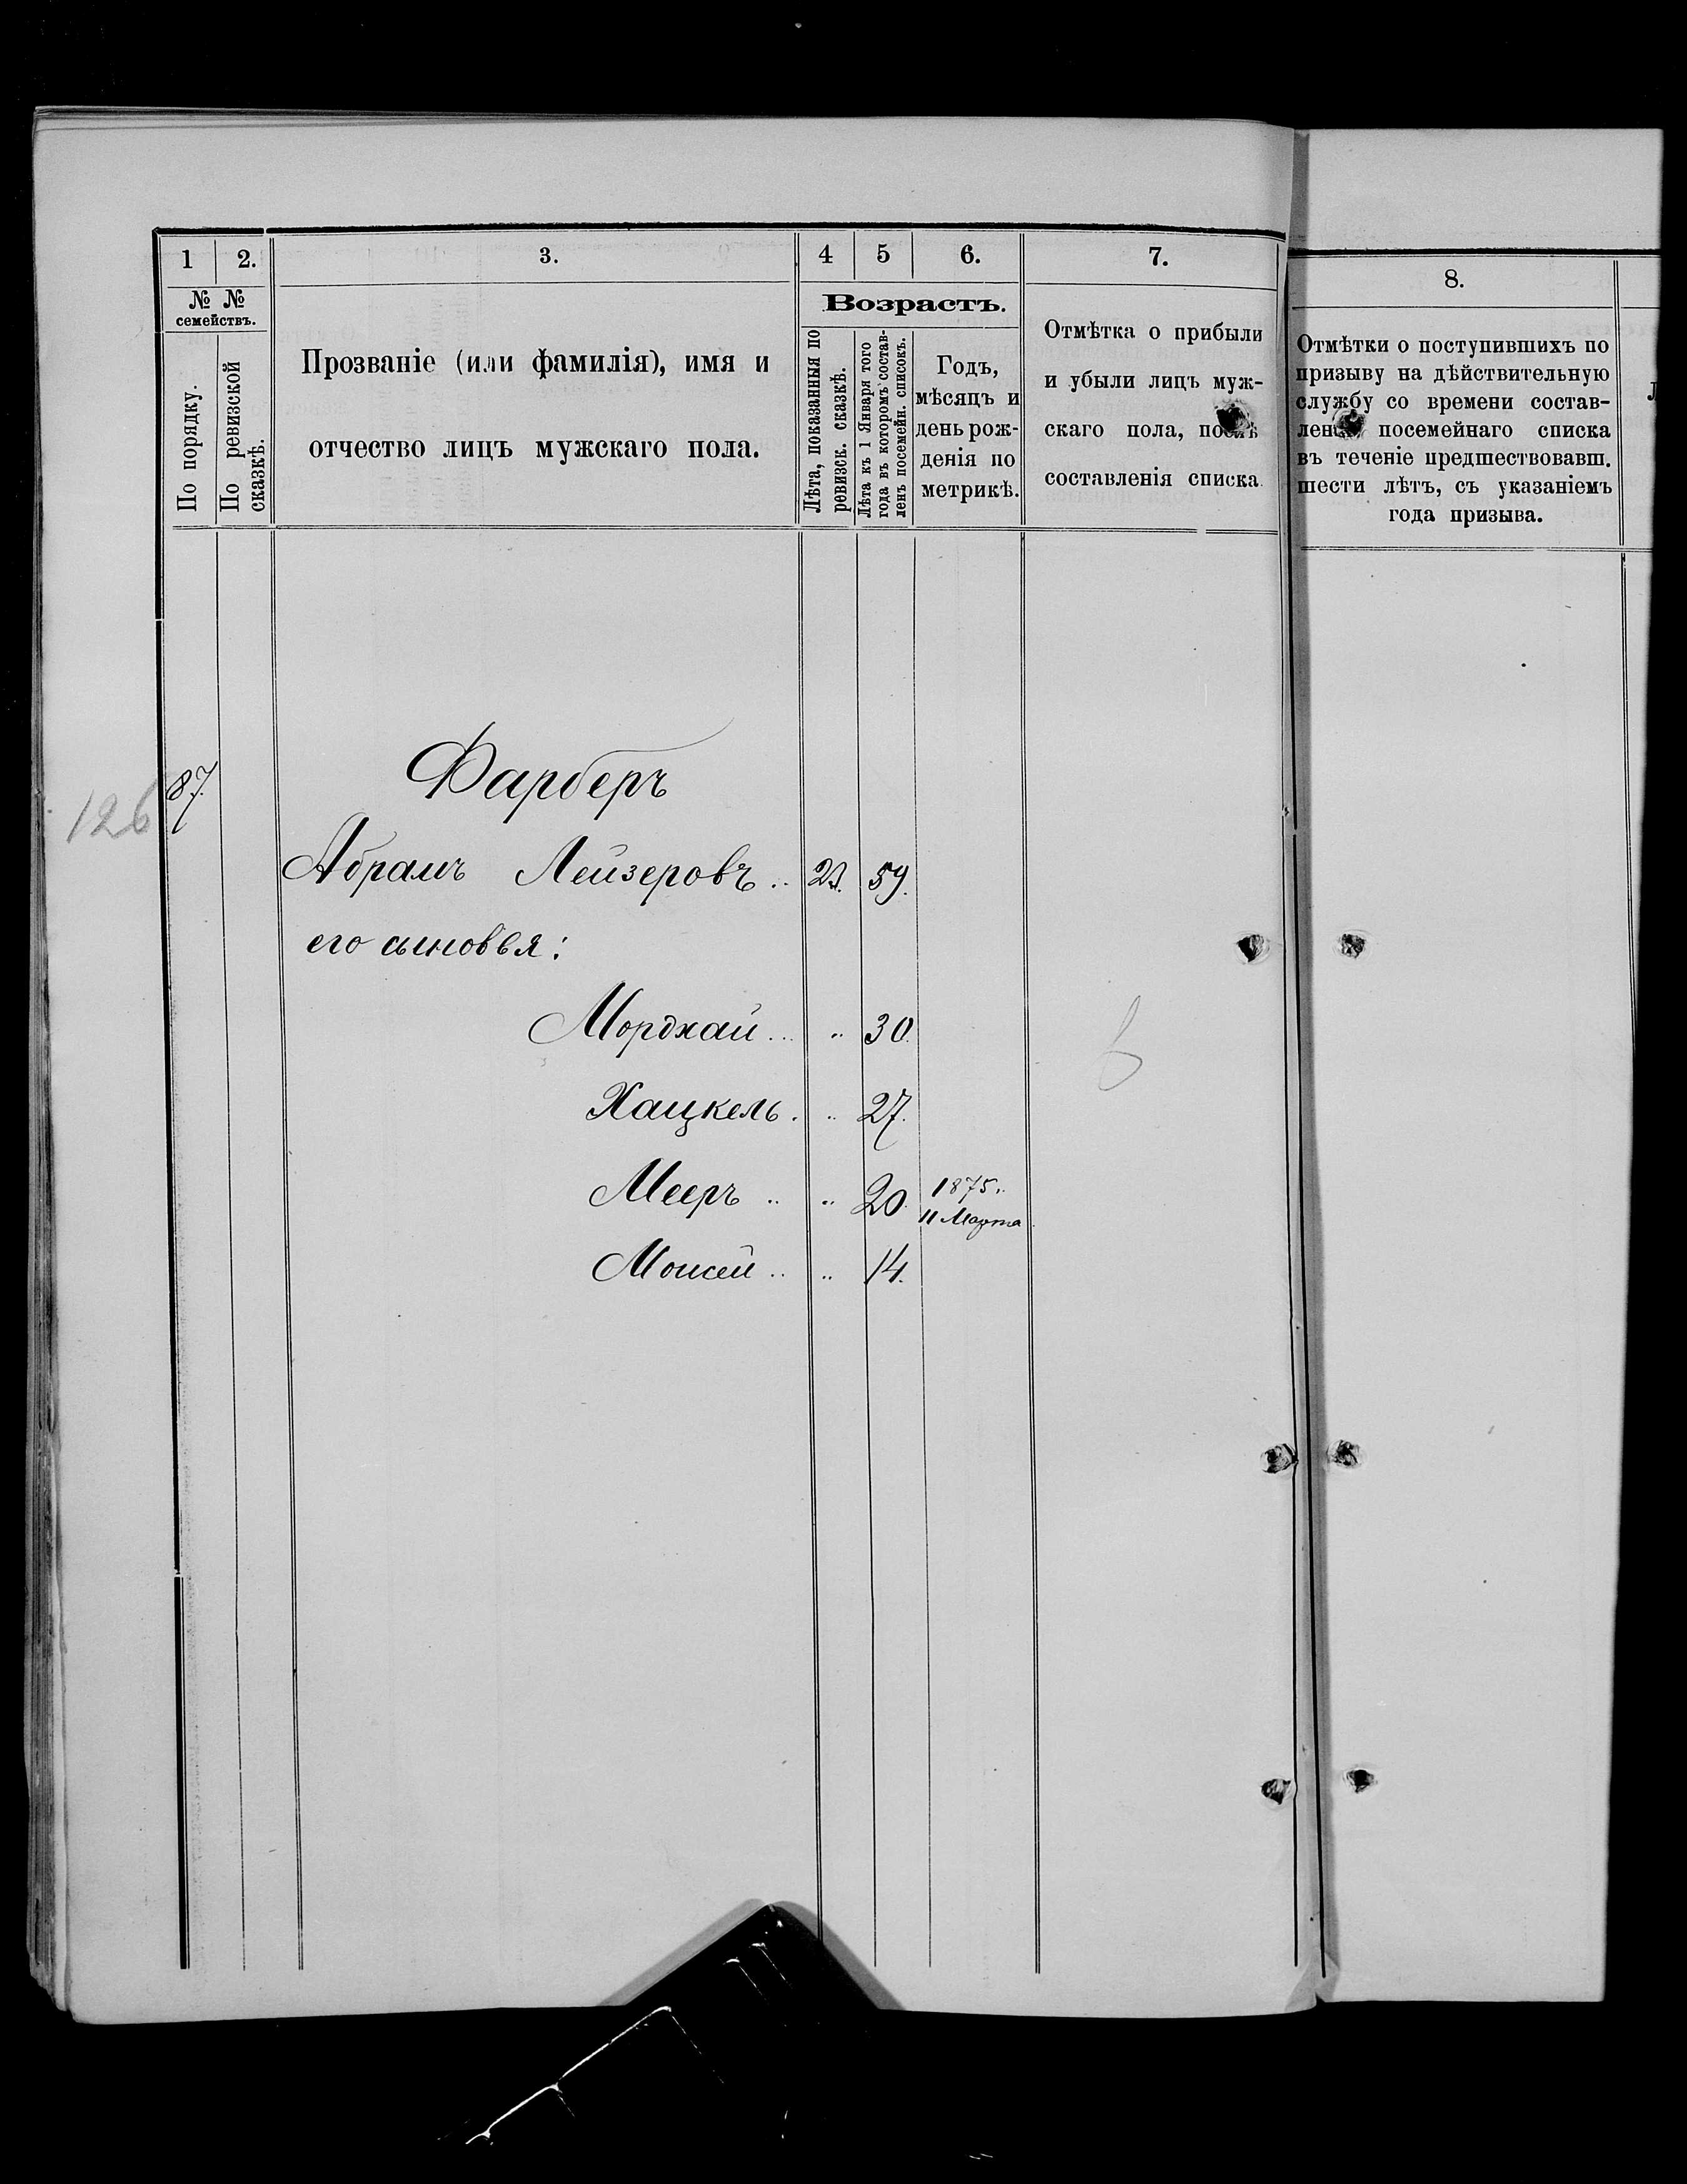 1 2. 3. 4 5 6. 7. 8.
№ №
семействъ.
По порядку.
По ревизской
сказкѣ.
Прозваніе (или фамилія), имя и
отчество лицъ мужскаго пола.
Возрастъ.
Лѣта, показанныя по
ревизск. сказкѣ.
Лѣта къ 1 Января того
года въ которомъ состав-
ленъ посемейн. списокъ.
Годъ,
мѣсяцъ и
день рож-
денія по
метрикѣ.
Отмѣтка о прибыли
и убыли лицъ муж-
скаго пола, послѣ
составленія списка
Отмѣтки о поступившихъ по
призыву на дѣйствительную
службу со времени состав-
посемейнаго списка
въ теченіе предшествовавш.
шести лѣтъ, съ указаніемъ
года призыва.
126 87. Фарберъ
Абрамъ Лейзеровъ .. 59.
его сыновья:
Мордхай ... .. 30.
Хацкель . .. 27.
Мееръ .. .. 20. 1875.
11 Марта
Моисей .. .. 14.